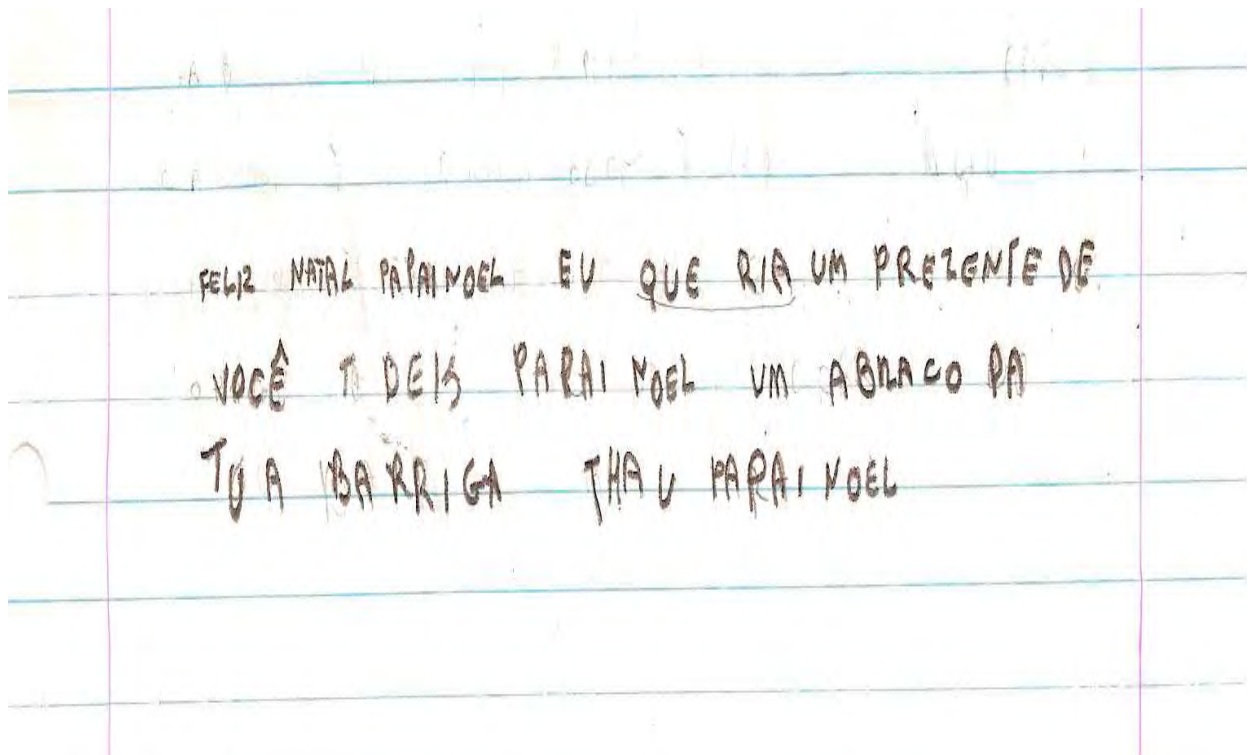 FELIZ NATAL PAPAI NOEL EU QUE RIA UM PREZENTE DE
VOCÊ T DEIS PAPAI NOEL UM ABRACO PA
TU A BARRIGA THAU PAPAI NOEL